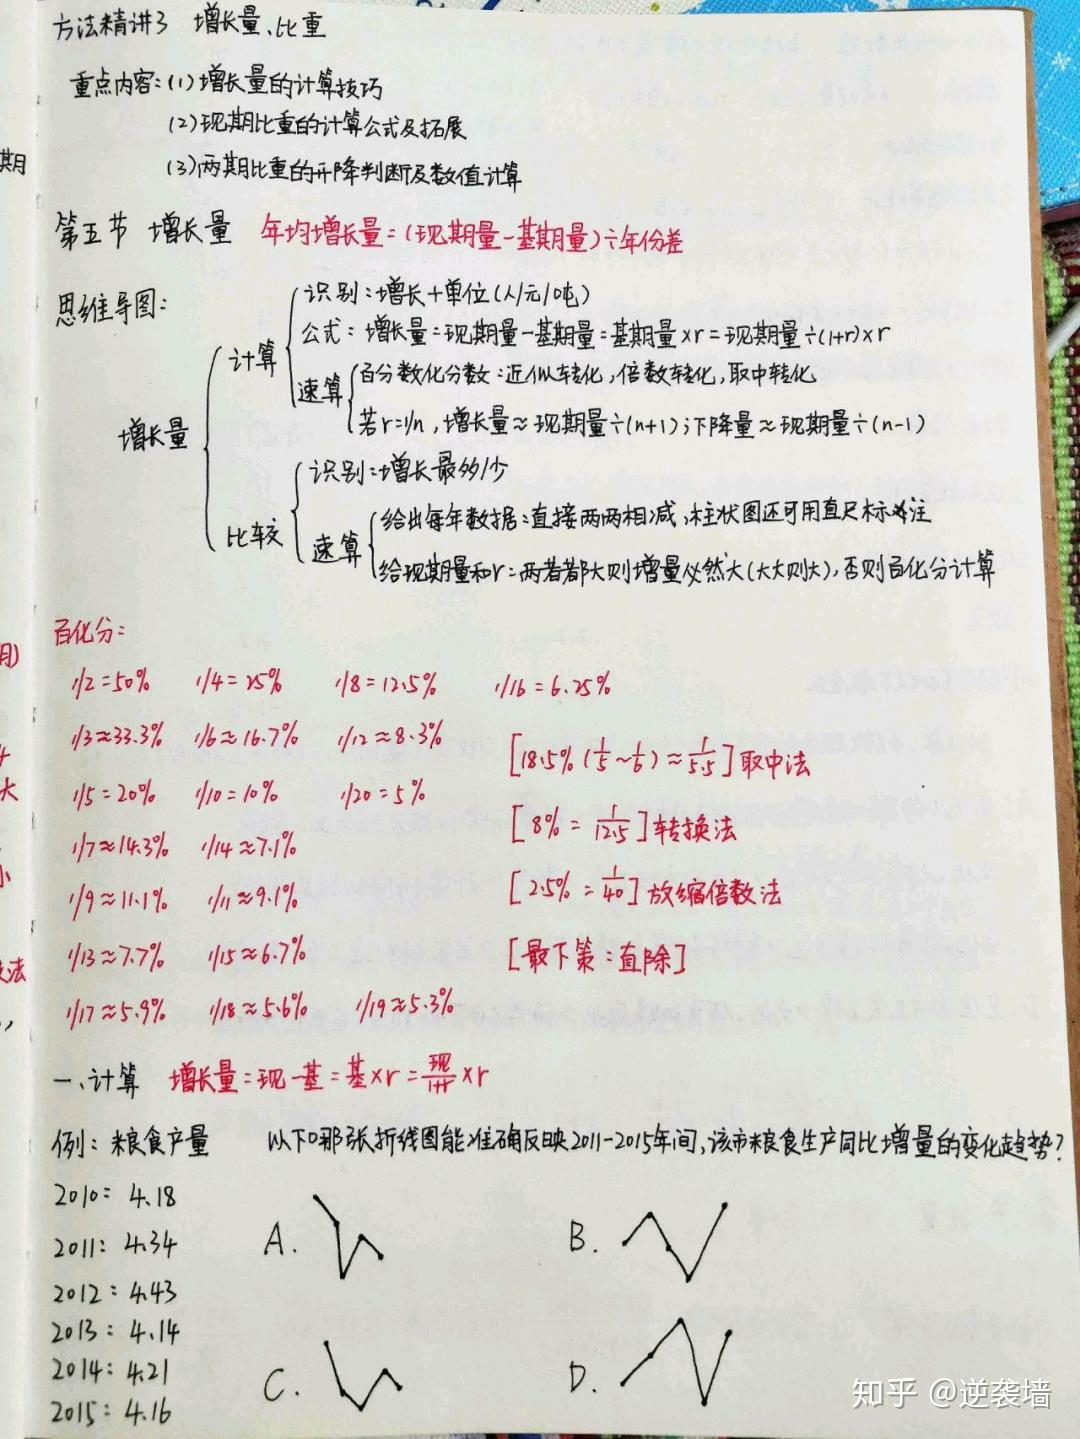 方法精讲3 增长量、比重
重点内容:(1)增长量的计算技巧
(2)现期比重的计算公式及拓展
(3)两期比重的升降判断及数值计算
第五节 增长量 年均增长量=(现期量-基期量)÷年份差
思维导图:
增长量
计算
识别:增长+单位(人/元/吨)
公式:增长量=现期量-基期量=基期量×r=现期量÷(1+r)×r
速算
百分数化分数:近似转化,倍数转化,取中转化
若r=1/n,增长量≈现期量÷(n+1);下降量≈现期量÷(n-1)
比较
识别:增长最多/少
速算
给出每年数据:直接两两相减,柱状图还可用直尺标注
给现期量和r:两者都大则增量必然大(大大则大),否则百化分计算
百化分:
1/2=50% 1/4=25% 1/8=12.5% 1/16=6.25%
1/3≈33.3% 1/6≈16.7% 1/12≈8.3%
[18.5%(1/5~1/6)≈1/5.5]取中法
1/5=20% 1/10=10% 1/20=5%
[8%=1/12.5]转换法
1/7≈14.3% 1/14≈7.1%
[2.5%=1/40]放缩倍数法
1/9≈11.1% 1/11≈9.1%
1/13≈7.7% 1/15≈6.7%
[最下策:直除]
1/17≈5.9% 1/18≈5.6% 1/19≈5.3%
一、计算 增长量=现-基=基×r=现/1+r×r
例:粮食产量 以下哪张折线图能准确反映2011-2015年间,该市粮食生产同比增量的变化趋势?
2010:4.18
2011:4.34
2012:4.43
2013:4.14
2014:4.21
2015:4.16
A. B.
C. D.
知乎 @逆袭墙